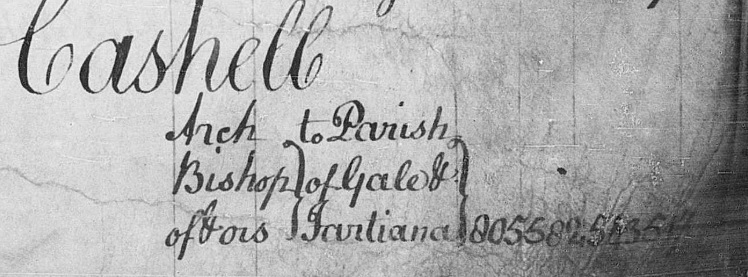 Cashell
Arch to Parish
Bishop of Gale &
of & ors Tartiana 805582